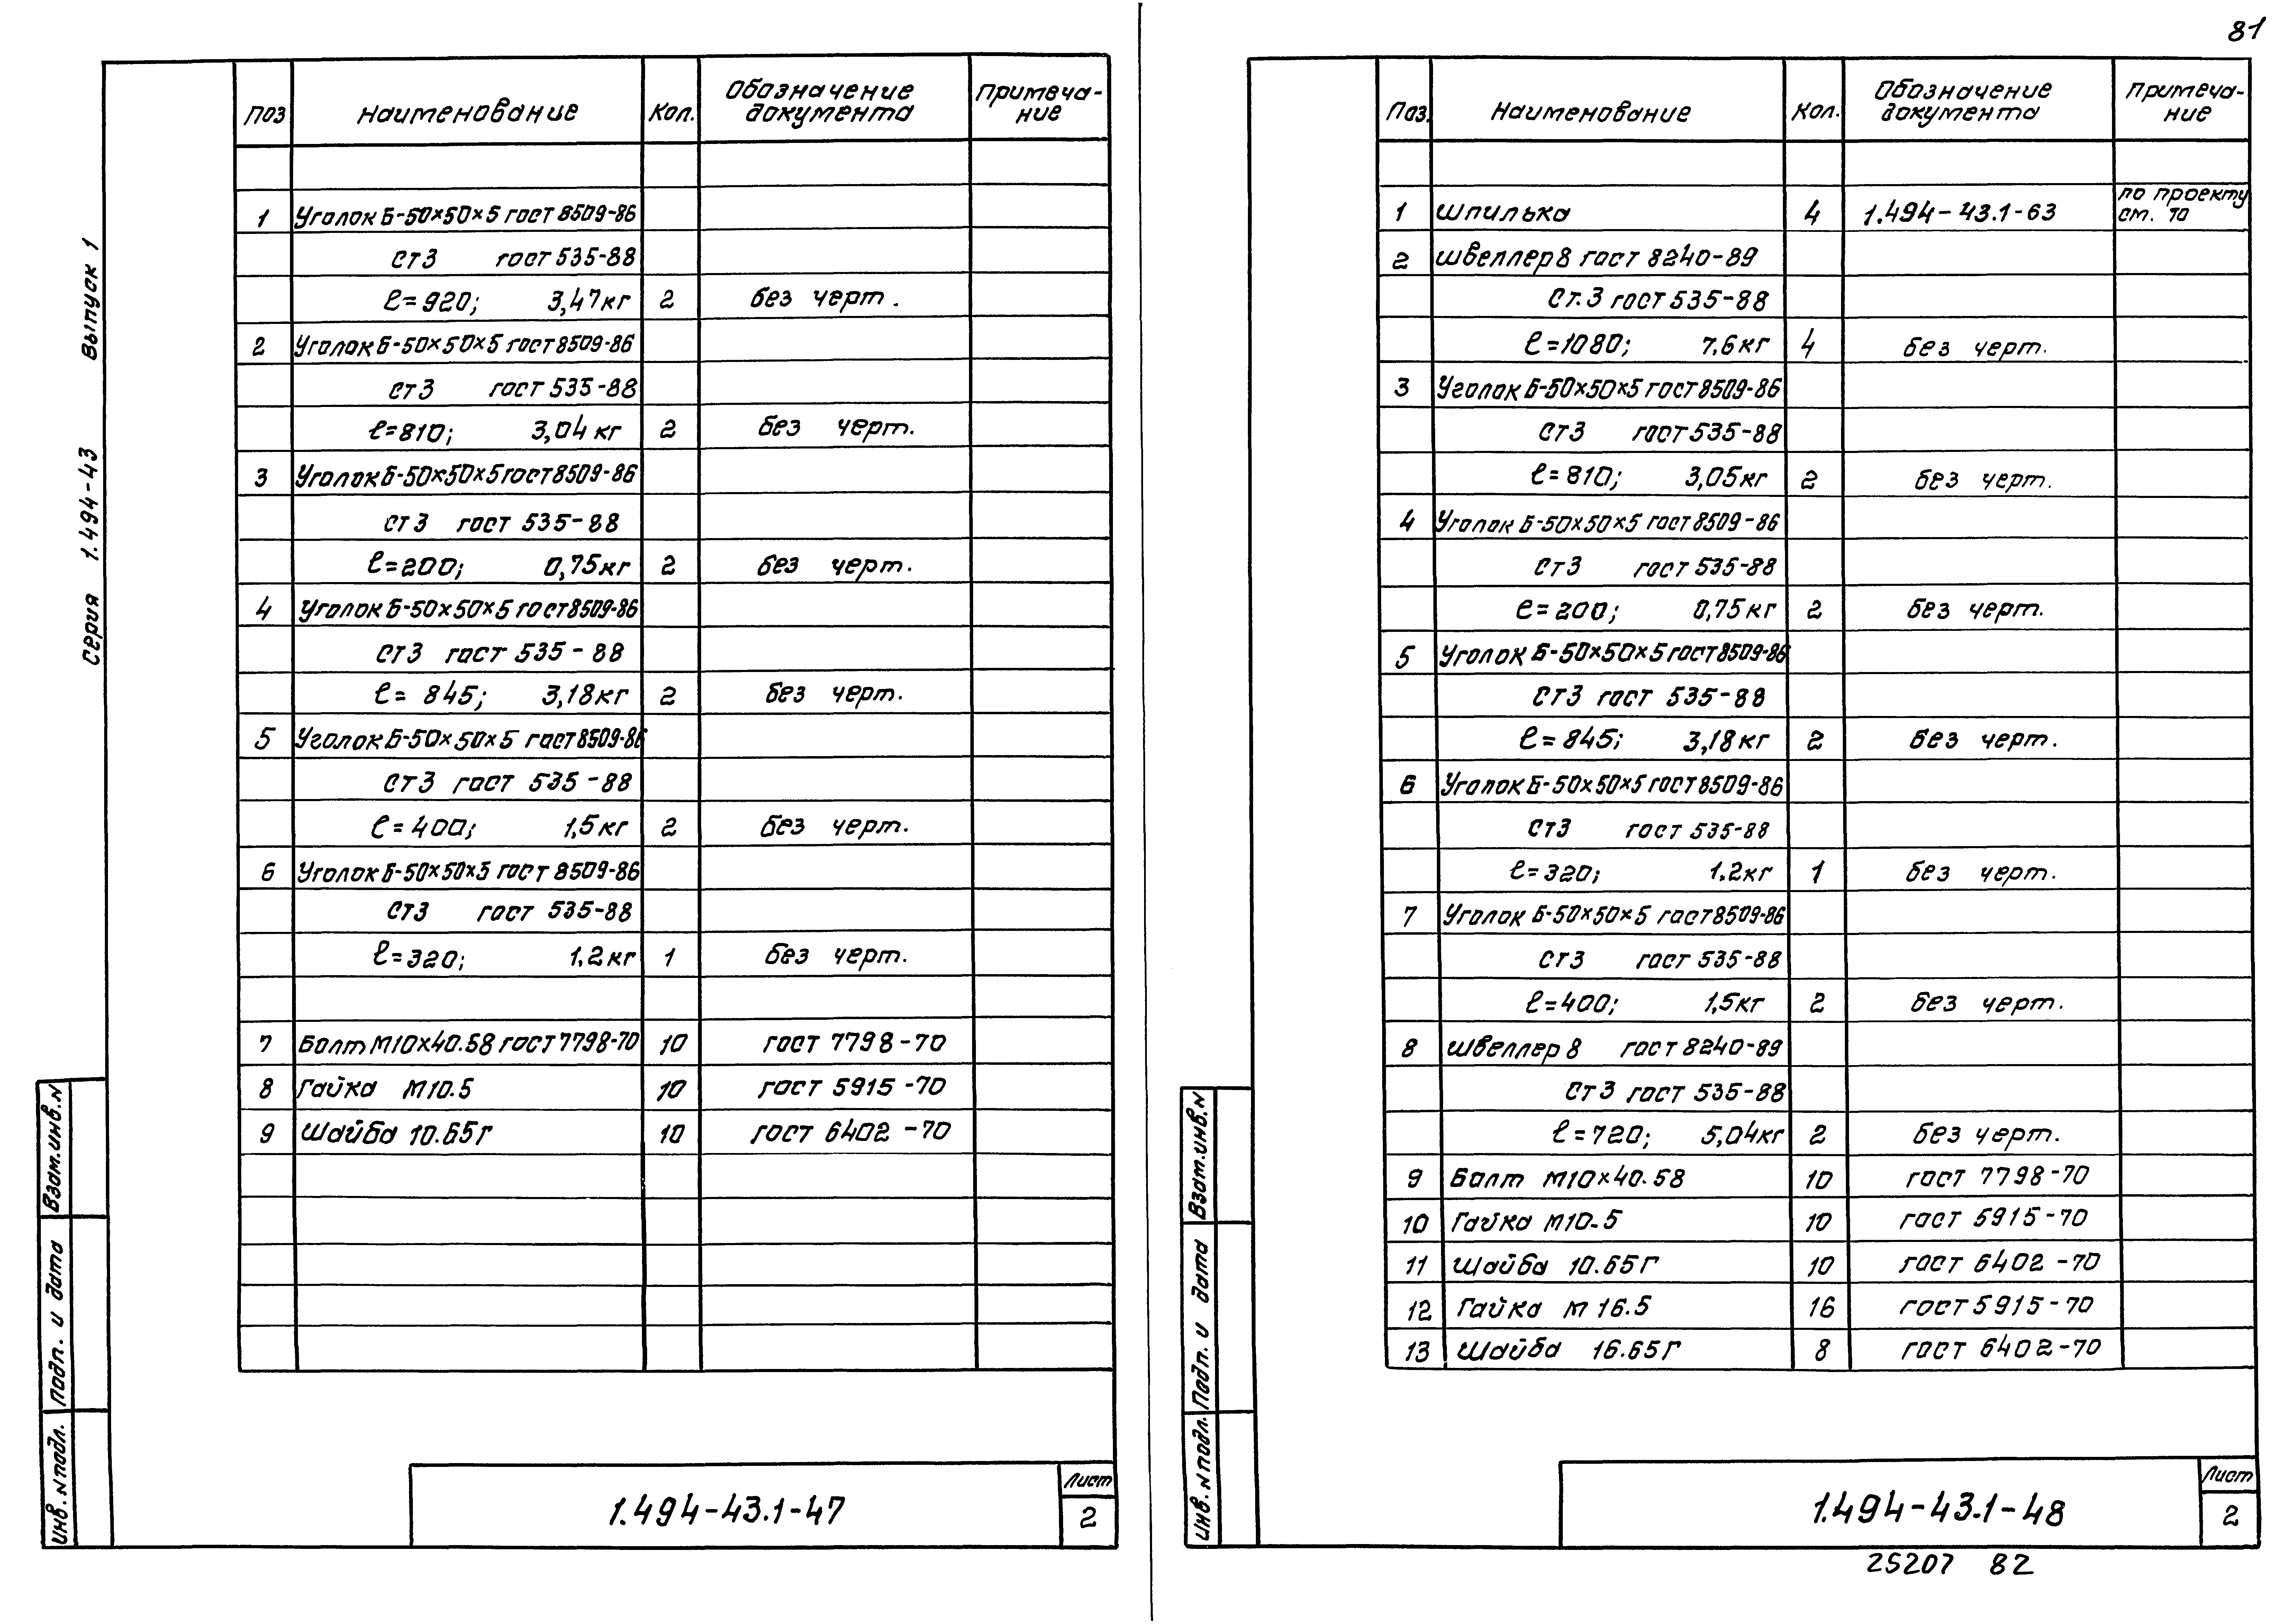 81
Серия 1.494-43 Выпуск 1
Поз Наименование Кол. Обозначение документа Примеча-ние
1 Уголок Б-50×50×5 ГОСТ 8509-86
Ст3 ГОСТ 535-88
ℓ=920; 3,47кг 2 без черт.
2 Уголок Б-50×50×5 ГОСТ 8509-86
Ст3 ГОСТ 535-88
ℓ=810; 3,04кг 2 без черт.
3 Уголок Б-50×50×5 ГОСТ 8509-86
Ст3 ГОСТ 535-88
ℓ=200; 0,75кг 2 без черт.
4 Уголок Б-50×50×5 ГОСТ 8509-86
Ст3 ГОСТ 535-88
ℓ=845; 3,18кг 2 без черт.
5 Уголок Б-50×50×5 ГОСТ 8509-86
Ст3 ГОСТ 535-88
ℓ=400; 1,5кг 2 без черт.
6 Уголок Б-50×50×5 ГОСТ 8509-86
Ст3 ГОСТ 535-88
ℓ=320; 1.2кг 1 без черт.
7 Болт М10×40.58 ГОСТ 7798-70 10 ГОСТ 7798-70
8 Гайка М10.5 10 ГОСТ 5915-70
9 Шайба 10.65Г 10 ГОСТ 6402-70
Инв. N подл. Подп. и дата Взам.инв.N
1.494-43.1-47
Лист
2
Поз. Наименование Кол. Обозначение документа Примеча-ние
1 Шпилька 4 1.494-43.1-63 по проекту
см. 70
2 Швеллер 8 ГОСТ 8240-89
Ст.3 ГОСТ 535-88
ℓ=1080; 7.6кг 4 без черт.
3 Уголок Б-50×50×5 ГОСТ 8509-86
Ст3 ГОСТ 535-88
ℓ=810; 3,05кг 2 без черт.
4 Уголок Б-50×50×5 ГОСТ 8509-86
Ст3 ГОСТ 535-88
ℓ=200; 0,75кг 2 без черт.
5 Уголок Б-50×50×5 ГОСТ 8509-86
Ст3 ГОСТ 535-88
ℓ=845; 3,18кг 2 без черт.
6 Уголок Б-50×50×5 ГОСТ 8509-86
Ст3 ГОСТ 535-88
ℓ=320; 1.2кг 1 без черт.
7 Уголок Б-50×50×5 ГОСТ 8509-86
Ст3 ГОСТ 535-88
ℓ=400; 1,5кг 2 без черт.
8 Швеллер 8 ГОСТ 8240-89
Ст3 ГОСТ 535-88
ℓ=720; 5,04кг 2 без черт.
9 Болт М10×40.58 10 ГОСТ 7798-70
10 Гайка М10.5 10 ГОСТ 5915-70
11 Шайба 10.65Г 10 ГОСТ 6402-70
12 Гайка М 16.5 16 ГОСТ 5915-70
13 Шайба 16.65Г 8 ГОСТ 6402-70
Инв. N подл. Подп. и дата Взам.инв.N
1.494-43.1-48
Лист
2
25207 82